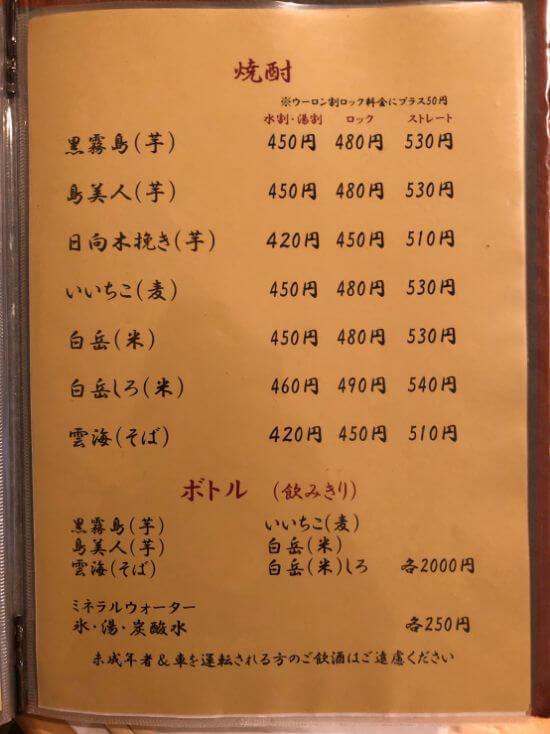 焼酎
※ウーロン割ロック料金にプラス50円
水割・湯割 ロック ストレート
黒霧島(芋) 450円 480円 530円
島美人(芋) 450円 480円 530円
日向木挽き(芋) 420円 450円 510円
いいちこ(麦) 450円 480円 530円
白岳(米) 450円 480円 530円
白岳しろ(米) 460円 490円 540円
雲海(そば) 420円 450円 510円
ボトル (飲みきり)
黒霧島(芋) いいちこ(麦)
島美人(芋) 白岳(米)
雲海(そば) 白岳(米)しろ 各2000円
ミネラルウォーター
氷・湯・炭酸水 各250円
未成年者&車を運転される方のご飲酒はご遠慮ください